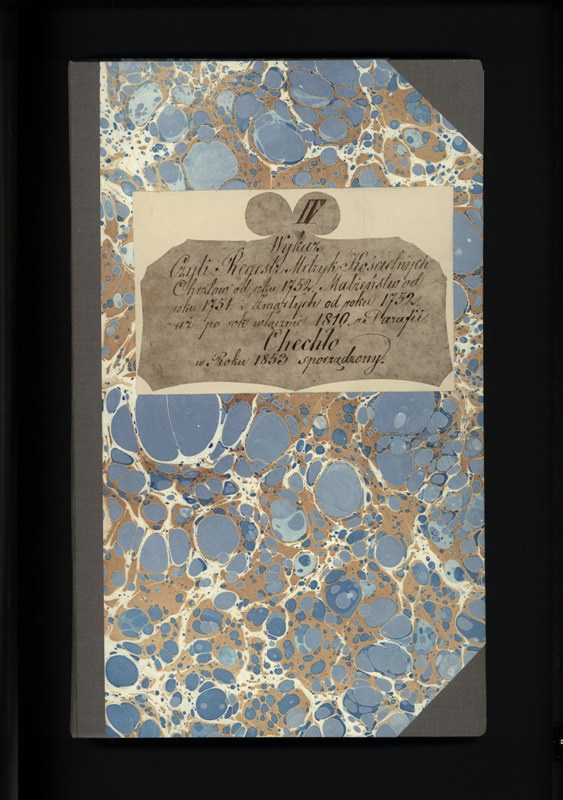 IV
Wykaz
Czyli Regestr Metryk Kościelnych
Chrztów od roku 1752, Małżeństw od
roku 1751 i Zmarłych od roku 1752
aż po rok włącznie 1810, z Parafii
Chechło
w Roku 1853 sporządzony.